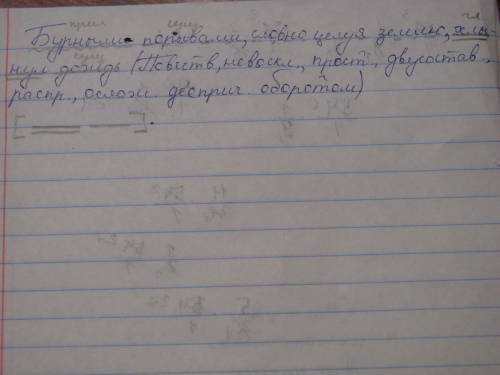 прил сущ гл
Бурными порывами, словно целуя землю, хлы-
сущ
нул дождь (Повеств, невоскл., прост, двусостав.,
распр., ослож. десприч оборотом)
[ ].